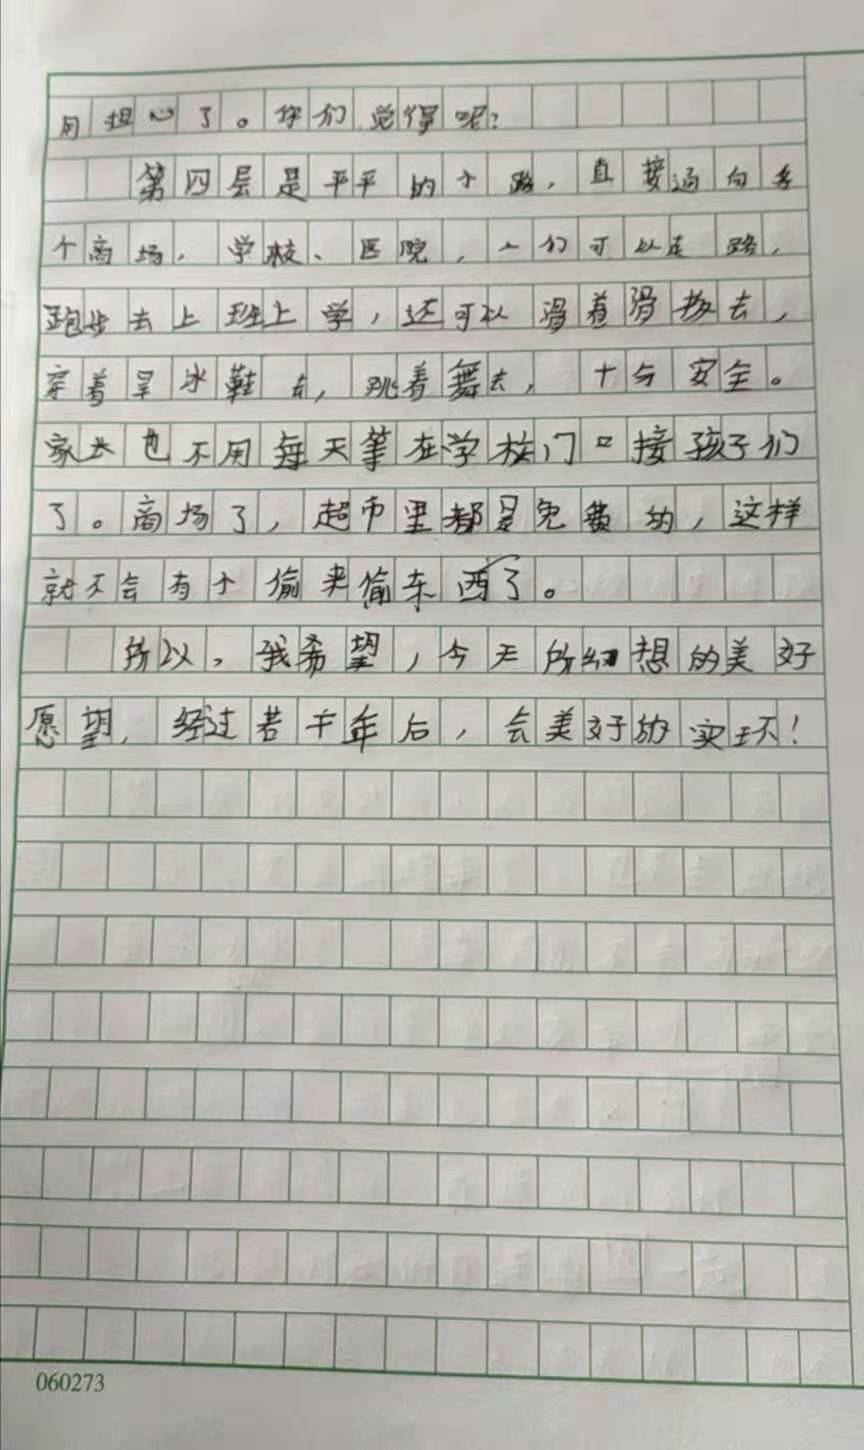 用担心了。你们觉得呢?
第四层是平平的小路,直接通向各
个商场,学校、医院,人们可以走路,
跑步去上班上学,还可以滑着滑板去,
穿着旱冰鞋去,跳着舞去,十分安全。
家长也不用每天等在学校门口接孩子们
了。商场了,超市里都是免费的,这样
就不会有小偷来偷东西了。
所以,我希望,今天所幻想的美好
愿望,经过若干年后,会美好的实现!
060273